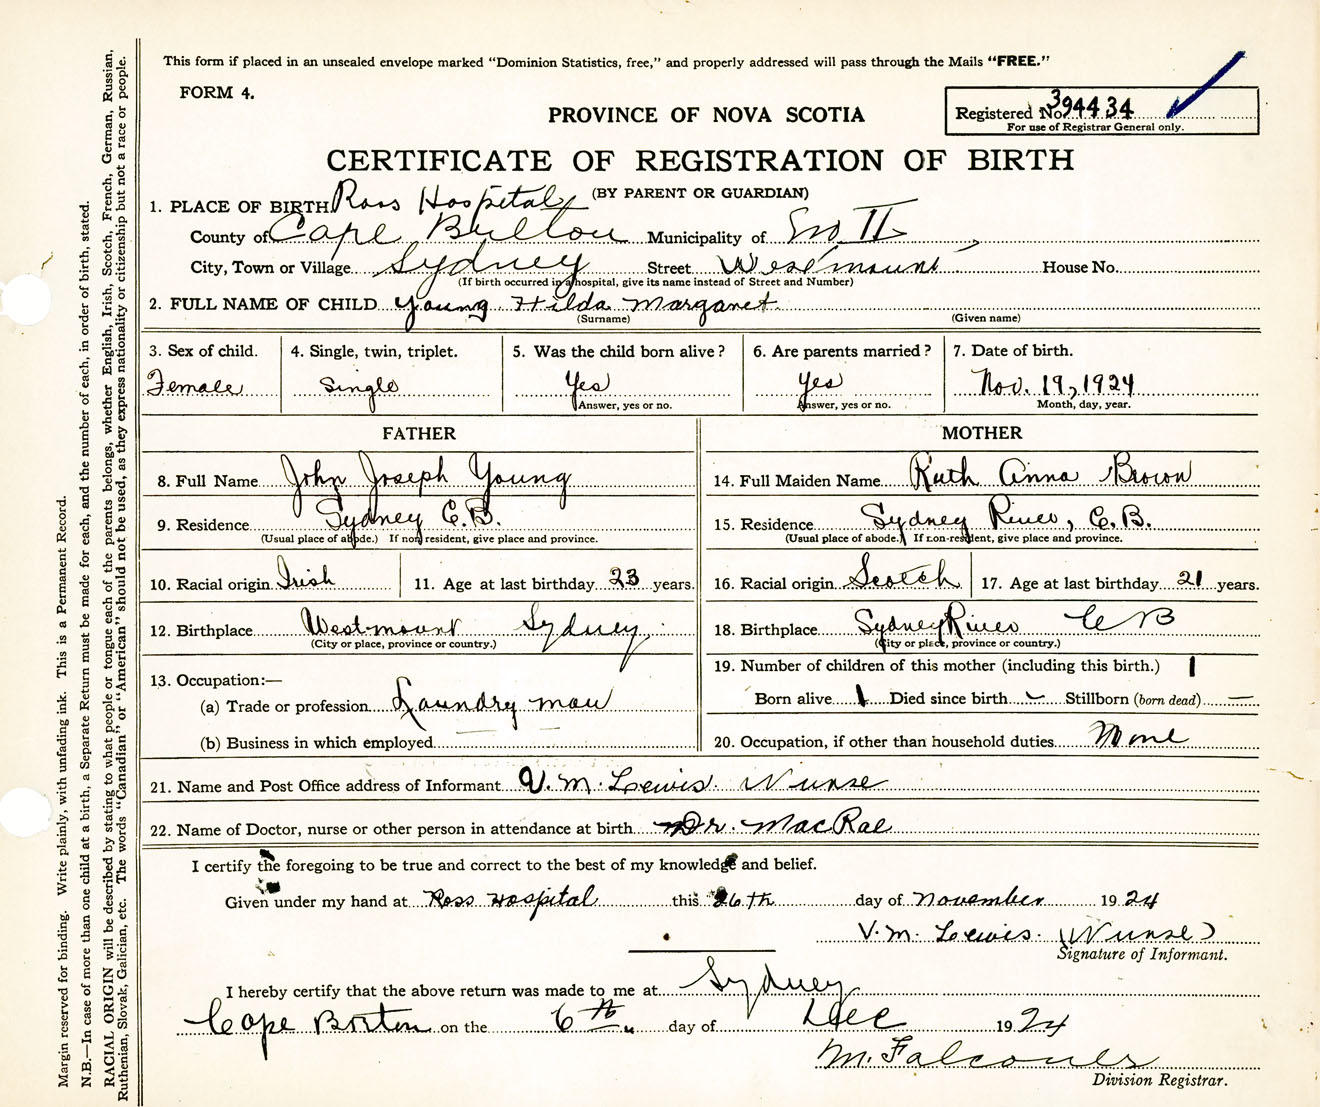 This form if placed in an unsealed envelope marked "Dominion Statistics, free," and properly addressed will pass through the Mails "FREE."
FORM 4.
PROVINCE OF NOVA SCOTIA
Registered No. 394434
For use of Registrar General only.
CERTIFICATE OF REGISTRATION OF BIRTH
(BY PARENT OR GUARDIAN)
1. PLACE OF BIRTH Ross Hospital
County of Cape Breton Municipality of No II
City, Town or Village Sydney Street Westmount House No.
(If birth occurred in a hospital, give its name instead of Street and Number)
2. FULL NAME OF CHILD Young Hilda Margaret
(Surname) (Given name)
3. Sex of child. 4. Single, twin, triplet. 5. Was the child born alive? 6. Are parents married? 7. Date of birth.
Female Single Yes Yes Nov. 19, 1924
Answer, yes or no. Answer, yes or no. Month, day, year.
FATHER
8. Full Name John Joseph Young
9. Residence Sydney C.B.
(Usual place of abode.) If non resident, give place and province.
10. Racial origin Irish 11. Age at last birthday 23 years.
12. Birthplace Westmount Sydney
(City or place, province or country.)
13. Occupation:—
(a) Trade or profession Laundry man
(b) Business in which employed
MOTHER
14. Full Maiden Name Ruth Anna Brown
15. Residence Sydney River, C.B.
(Usual place of abode.) If non-resident, give place and province.
16. Racial origin Scotch 17. Age at last birthday 21 years.
18. Birthplace Sydney River C B
(City or place, province or country.)
19. Number of children of this mother (including this birth.) 1
Born alive 1 Died since birth — Stillborn (born dead) —
20. Occupation, if other than household duties None
21. Name and Post Office address of Informant V. M. Lewis. Nurse
22. Name of Doctor, nurse or other person in attendance at birth Dr. MacRae
I certify the foregoing to be true and correct to the best of my knowledge and belief.
Given under my hand at Ross Hospital this 26th day of November 1924
V. M. Lewis. (Nurse)
Signature of Informant.
I hereby certify that the above return was made to me at Sydney
Cape Breton on the 6th day of Dec 1924
M. Falconer
Division Registrar.
Margin reserved for binding. Write plainly, with unfading ink. This is a Permanent Record.
N.B.—In case of more than one child at a birth, a Separate Return must be made for each, and the number of each, in order of birth, stated.
RACIAL ORIGIN will be described by stating to what people or tongue each of the parents belongs, whether English, Irish, Scotch, French, German, Russian,
Ruthenian, Slovak, Galician, etc. The words "Canadian" or "American" should not be used, as they express nationality or citizenship but not a race or people.